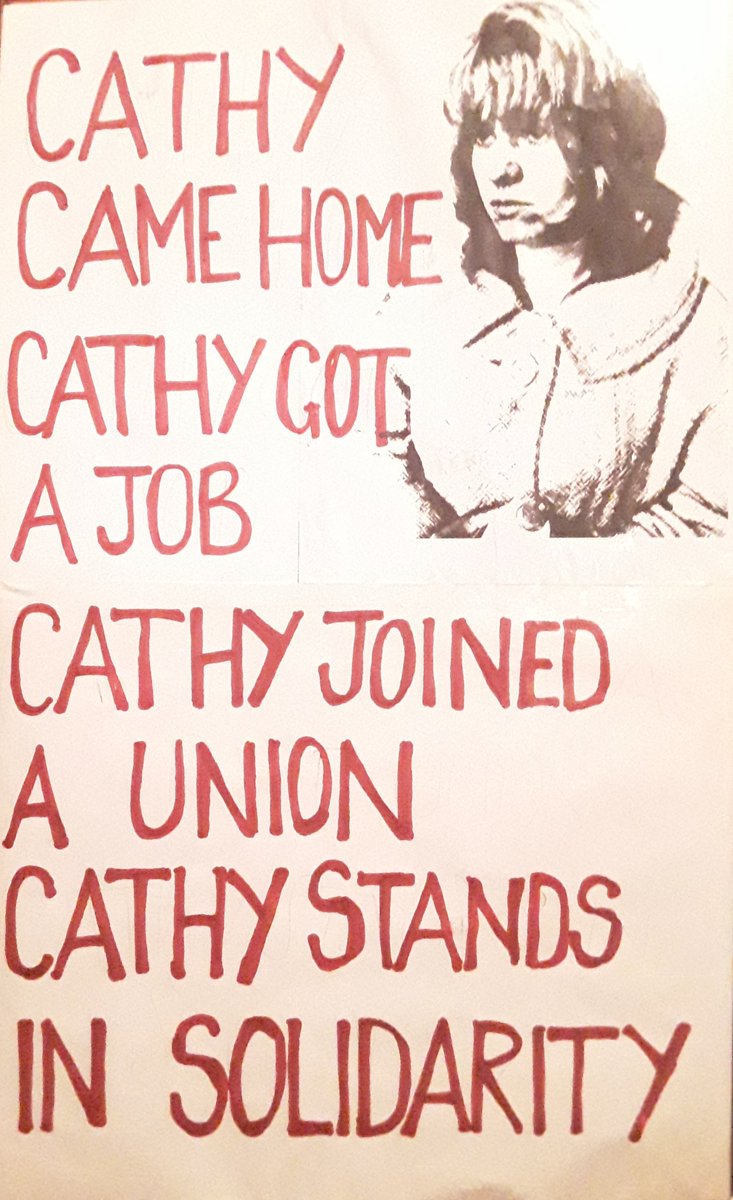 CATHY
CAME HOME
CATHY GOT
A JOB
CATHY JOINED
A UNION
CATHY STANDS
IN SOLIDARITY